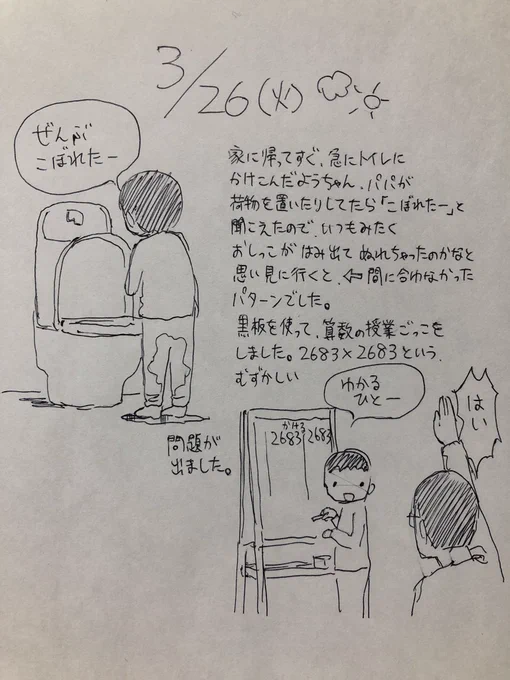 3/26(火)
ぜんぶ
こぼれたー
家に帰ってすぐ、急にトイレに
かけこんだようちゃん、パパが
荷物を置いたりしてたら「こぼれたー」と
聞こえたので、いつもみたく
おしっこがはみ出てぬれちゃったのかなと
思い見に行くと、⇦間に合わなかった
パターンでした。
黒板を使って、算数の授業ごっこを
しました。2683×2683という、
むずかしい
問題が
出ました。
わかる
ひとー
はい
かける
2683 2683